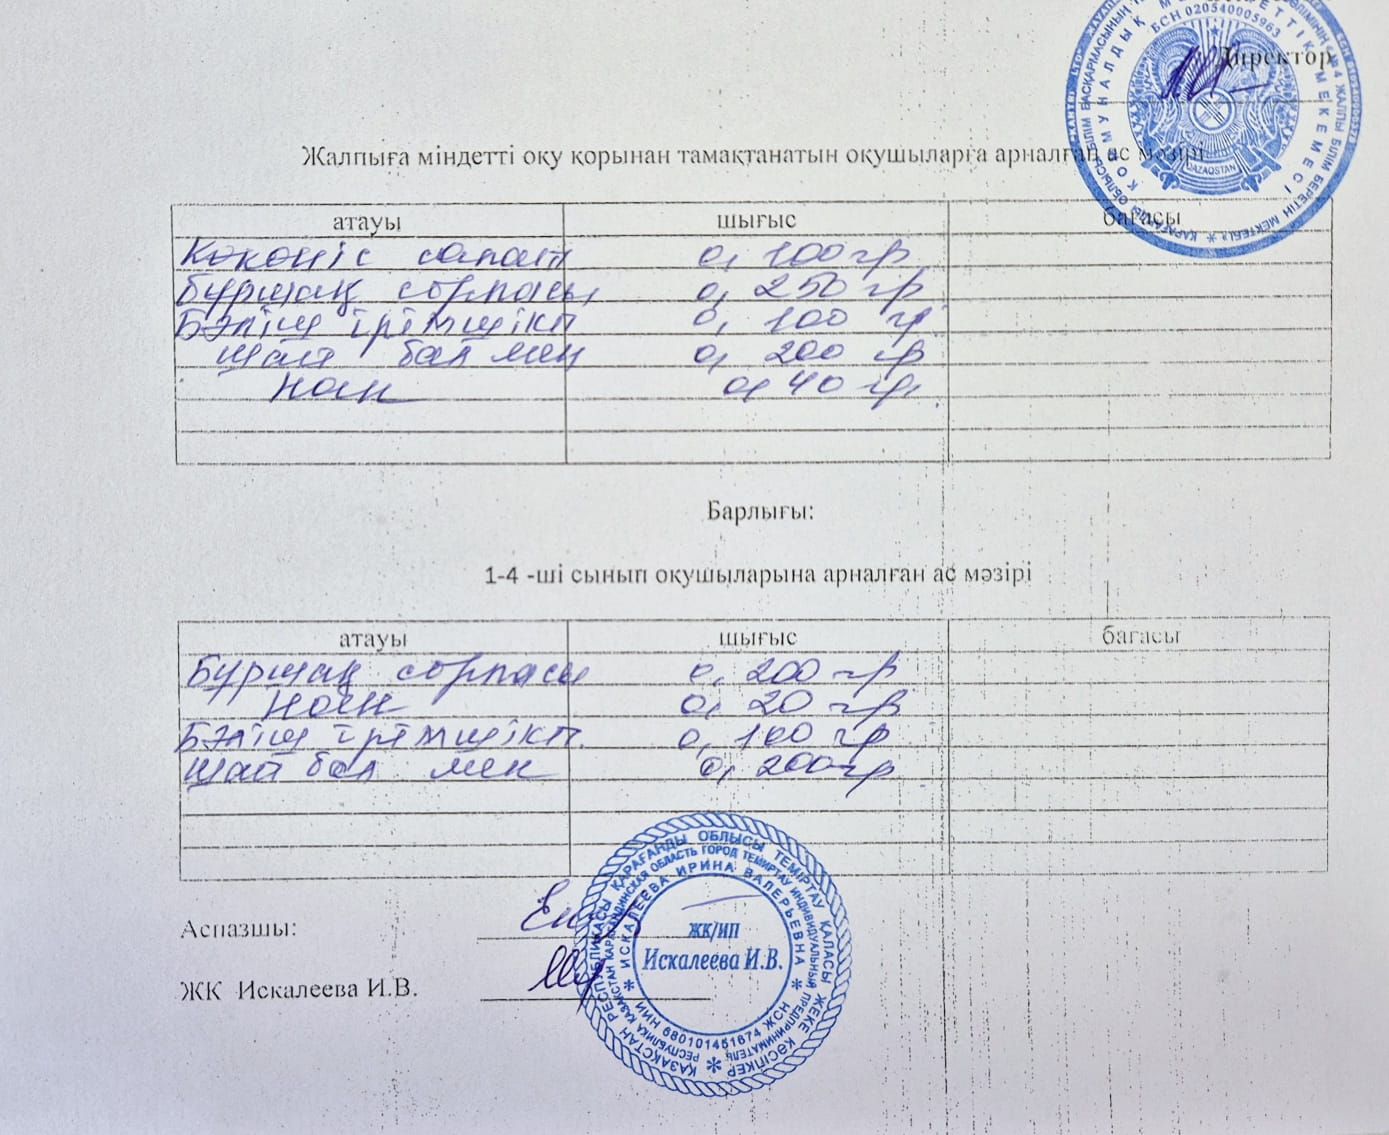 Директор
БСН 020540005963
КОММУНАЛДЫҚ МЕМЛЕКЕТТІК МЕКЕМЕСІ
QAZAQSTAN
Жалпыға міндетті оқу қорынан тамақтанатын оқушыларға арналған ас мәзірі
атауы шығыс бағасы
Көкөніс салат 0, 100 гр
бұршақ сорпасы 0, 250 гр
Бәліш ірімшікп 0, 100 гр.
шай бал мен 0, 200 гр
нан 0, 40 гр.
Барлығы:
1-4 -ші сынып оқушыларына арналған ас мәзірі
атауы шығыс бағасы
Бұршақ сорпасы 0, 200 гр
нан 0, 20 гр
Бәліш ірімшікп. 0, 100 гр
шай бал мен 0, 200 гр
Аспазшы:
ЖК Искалеева И.В.
ҚАЗАҚСТАН РЕСПУБЛИКАСЫ ҚАРАҒАНДЫ ОБЛЫСЫ ТЕМІРТАУ ҚАЛАСЫ ЖЕКЕ КӘСІПКЕР
РЕСПУБЛИКА КАЗАХСТАН КАРАГАНДИНСКАЯ ОБЛАСТЬ ГОРОД ТЕМИРТАУ ИНДИВИДУАЛЬНЫЙ ПРЕДПРИНИМАТЕЛЬ
ИСКАЛЕЕВА ИРИНА ВАЛЕРЬЕВНА
ИИН 680101451674 ЖСН
ЖК/ИП
Искалеева И.В.